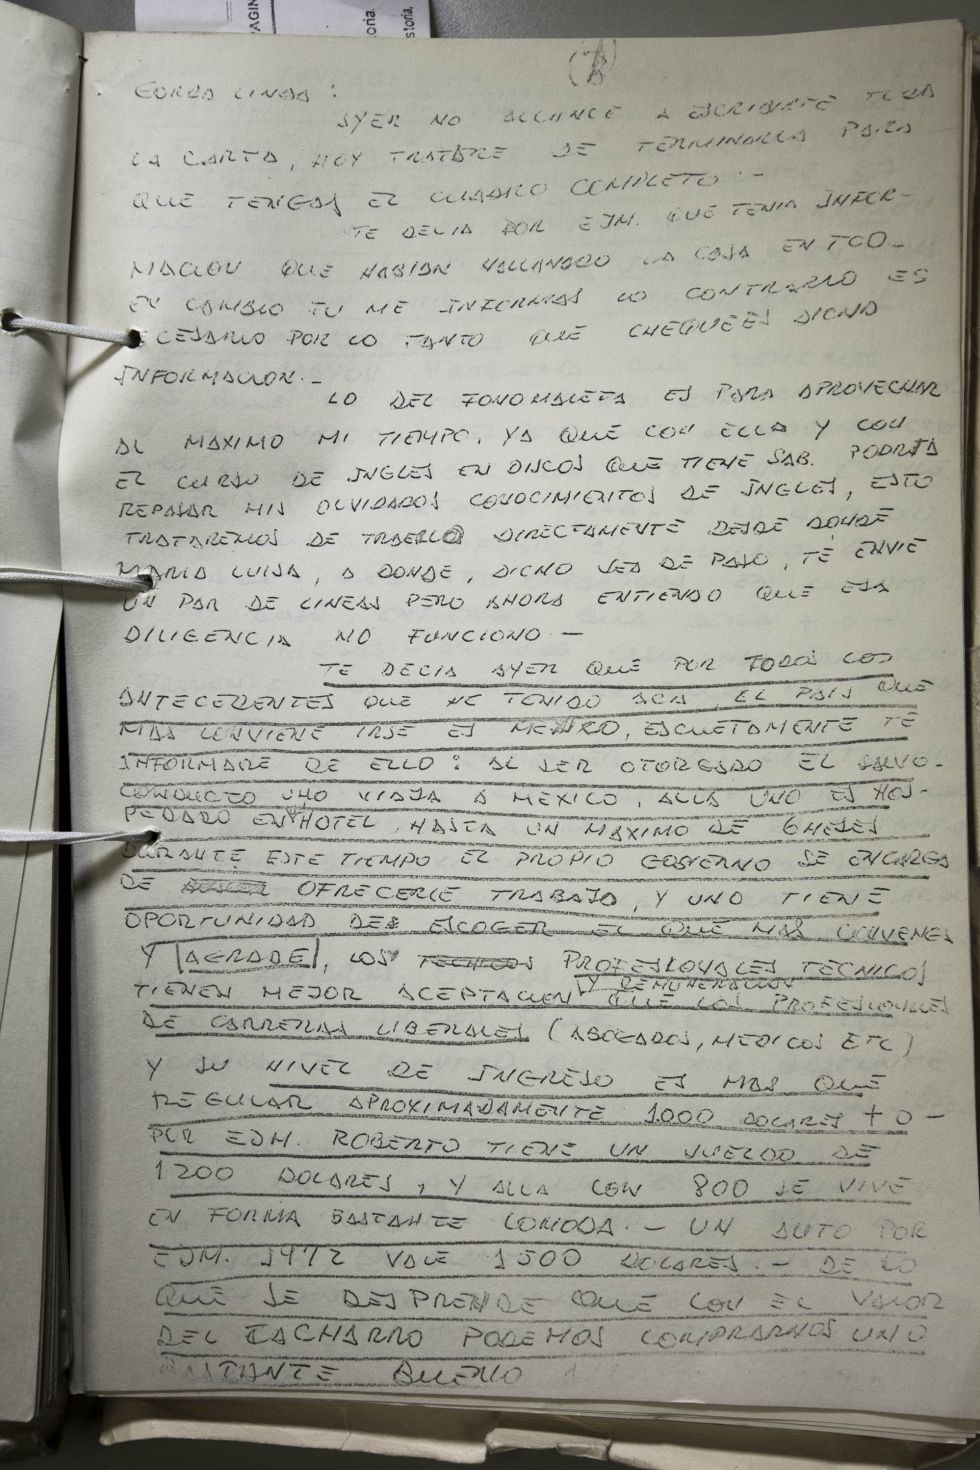 PAGIN
oria.
storia,
GORDA LINDA :
AYER NO ALCANCE A ESCRIBIRTE TODA
LA CARTA, HOY TRATARE DE TERMINARLA PARA
QUE TENGAS EL CUADRO COMPLETO . -
TE DECIA POR EJM. QUE TENIA INFOR-
MACION QUE HABIAN ALLANADO LA CASA EN TOO-
EN CAMBIO TU ME INFORMAS LO CONTRARIO ES
ECESARIO POR LO TANTO QUE CHEQUEES DICHA
INFORMACION. -
LO DEL FONOMALETA ES PARA APROVECHAR
AL MAXIMO MI TIEMPO, YA QUE CON ELLA Y CON
EL CURSO DE INGLES EN DISCOS QUE TIENE SAB. PODRIA
REPASAR MIS OLVIDADOS CONOCIMIENTOS DE INGLES, ESTO
TRATAREMOS DE TRAERLO DIRECTAMENTE DESDE DONDE
MARIA LUISA, A DONDE, DICHO SEA DE PASO, TE ENVIE
UN PAR DE LINEAS PERO AHORA ENTIENDO QUE ESA
DILIGENCIA NO FUNCIONO -
TE DECIA AYER QUE POR TODOS LOS
ANTECEDENTES QUE HE TENIDO ACA, EL PAIS QUE
MAS CONVIENE IRSE ES MEXICO, ESCUETAMENTE TE
INFORMARE DE ELLO : AL SER OTORGADO EL SALVO-
CONDUCTO UNO VIAJA A MEXICO, ALLA UNO ES HOS-
PEDADO EN HOTEL, HASTA UN MAXIMO DE 6 MESES
DURANTE ESTE TIEMPO EL PROPIO GOBIERNO SE ENCARGA
DE OFRECERLE TRABAJO, Y UNO TIENE
OPORTUNIDAD DE ESCOGER EL QUE MAS CONVENGA
Y AGRADE, LOS TECNICOS PROFESIONALES TECNICOS
TIENEN MEJOR ACEPTACION Y REMUNERACION QUE LOS PROFESIONALES
DE CARRERAS LIBERALES (ABOGADOS, MEDICOS ETC)
Y SU NIVEL DE INGRESO ES MAS QUE
REGULAR APROXIMADAMENTE 1000 DOLARES + O -
POR EJM. ROBERTO TIENE UN SUELDO DE
1200 DOLARES, Y ALLA CON 800 SE VIVE
EN FORMA BASTANTE COMODA. - UN AUTO POR
EJM. 1972 VALE 1500 DOLARES. - DE LO
QUE SE DESPRENDE QUE CON EL VALOR
DEL CACHARRO PODEMOS COMPRARNOS UNO
BASTANTE BUENO